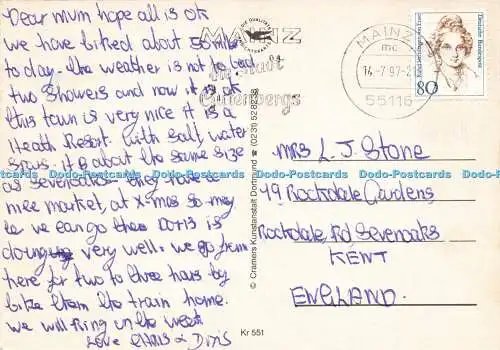 Dear mum hope all is ok
we have biked about 50 miles
to day. the weather is not to bad
two Showers and now it is ok
this town is very nice it is a
Health Resort. with Salt, water
Spars. it is about the same size
as Sevenoaks they have a
nice market, at X-mas so may
be we can go then Doris is
doing very well. we go from
here for two to three hours by
bike then the train home.
we will Ring in the week
Love CHRIS & Doris
MAINZ
die Stadt
Gutenbergs
MAINZ
mc
14.-7.97-21
55116
Deutsche Bundespost
80
MRS L. J. Stone
49 Rockdale Gardens
Rockdale Rd Sevenoaks
KENT
ENGLAND.
© Cramers Kunstanstalt Dortmund ☎ (0231)
Kr 551
Dodo-Postcards Dodo-Postcards Dodo-Postcards Dodo-Postcards Dodo-Postcards